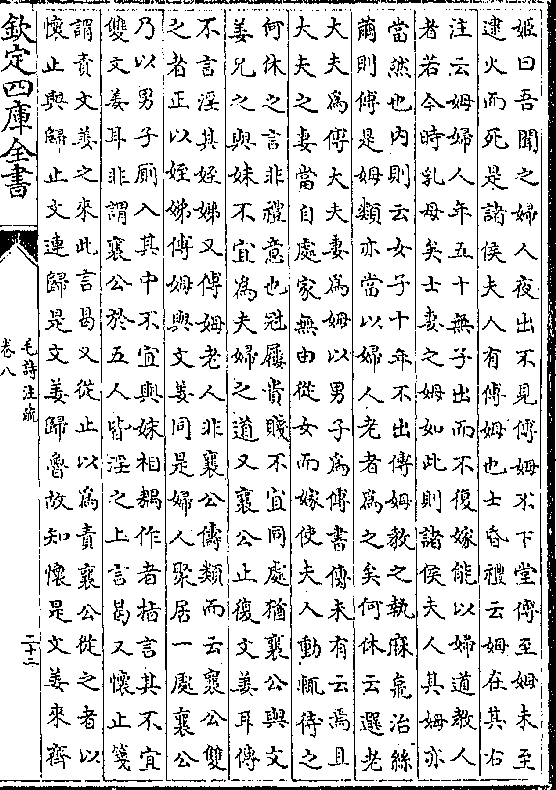 姬曰吾聞之婦人夜出不見傅姆不下堂傅至姆未至
逮火而死是諸侯夫人有傅姆也士昏禮云姆在其右
注云姆婦人年五十無子出而不復嫁能以婦道教人
者若今時乳母矣士妻之姆如此則諸侯夫人其姆亦
當然也内則云女子十年不出傅姆教之執麻枲治絲
繭則傅是姆類亦當以婦人老者為之矣何休云選老
大夫為傅大夫妻為姆以男子為傅書傳未有云焉且
大夫之妻當自處家無由從女而嫁使夫人動輒待之
何休之言非禮意也冠屨貴賤不宜同處猶襄公與文
姜兄之與妹不宜為夫婦之道又襄公止復文姜耳傅
不言淫其姪娣又傅姆老人非襄公儔類而云襄公雙
之者正以姪娣傅姆與文姜同是婦人聚居一處襄公
乃以男子厠入其中不宜與妹相耦作者指言其不宜
雙文姜耳非謂襄公於五人皆淫之上言曷又懷止箋
謂責文姜之來此言曷又從止以為責襄公從之者以
懷止與歸止文連歸是文姜歸魯故知懷是文姜來齊
欽定四庫全書
毛詩注疏
卷八
二十二